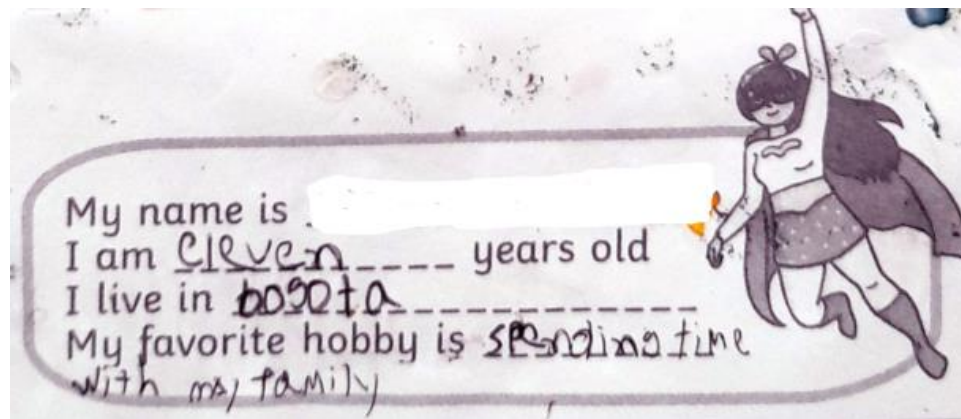 My name is
I am eleven years old
I live in bogota
My favorite hobby is spending time
with my family